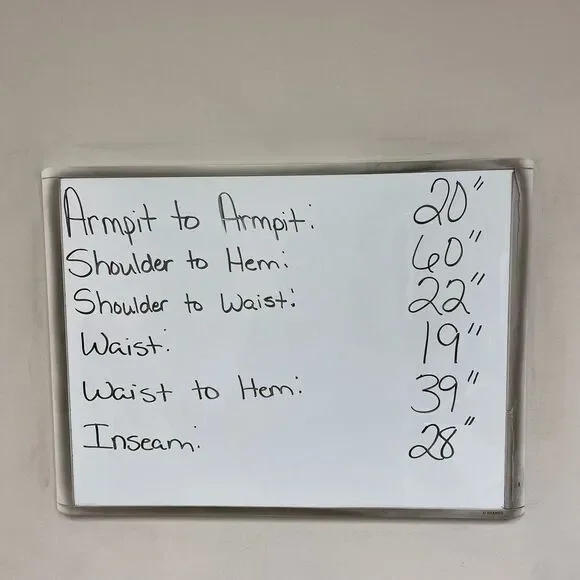 Armpit to Armpit: 20"
Shoulder to Hem: 60"
Shoulder to Waist: 22"
Waist: 19"
Waist to Hem: 39"
Inseam: 28"